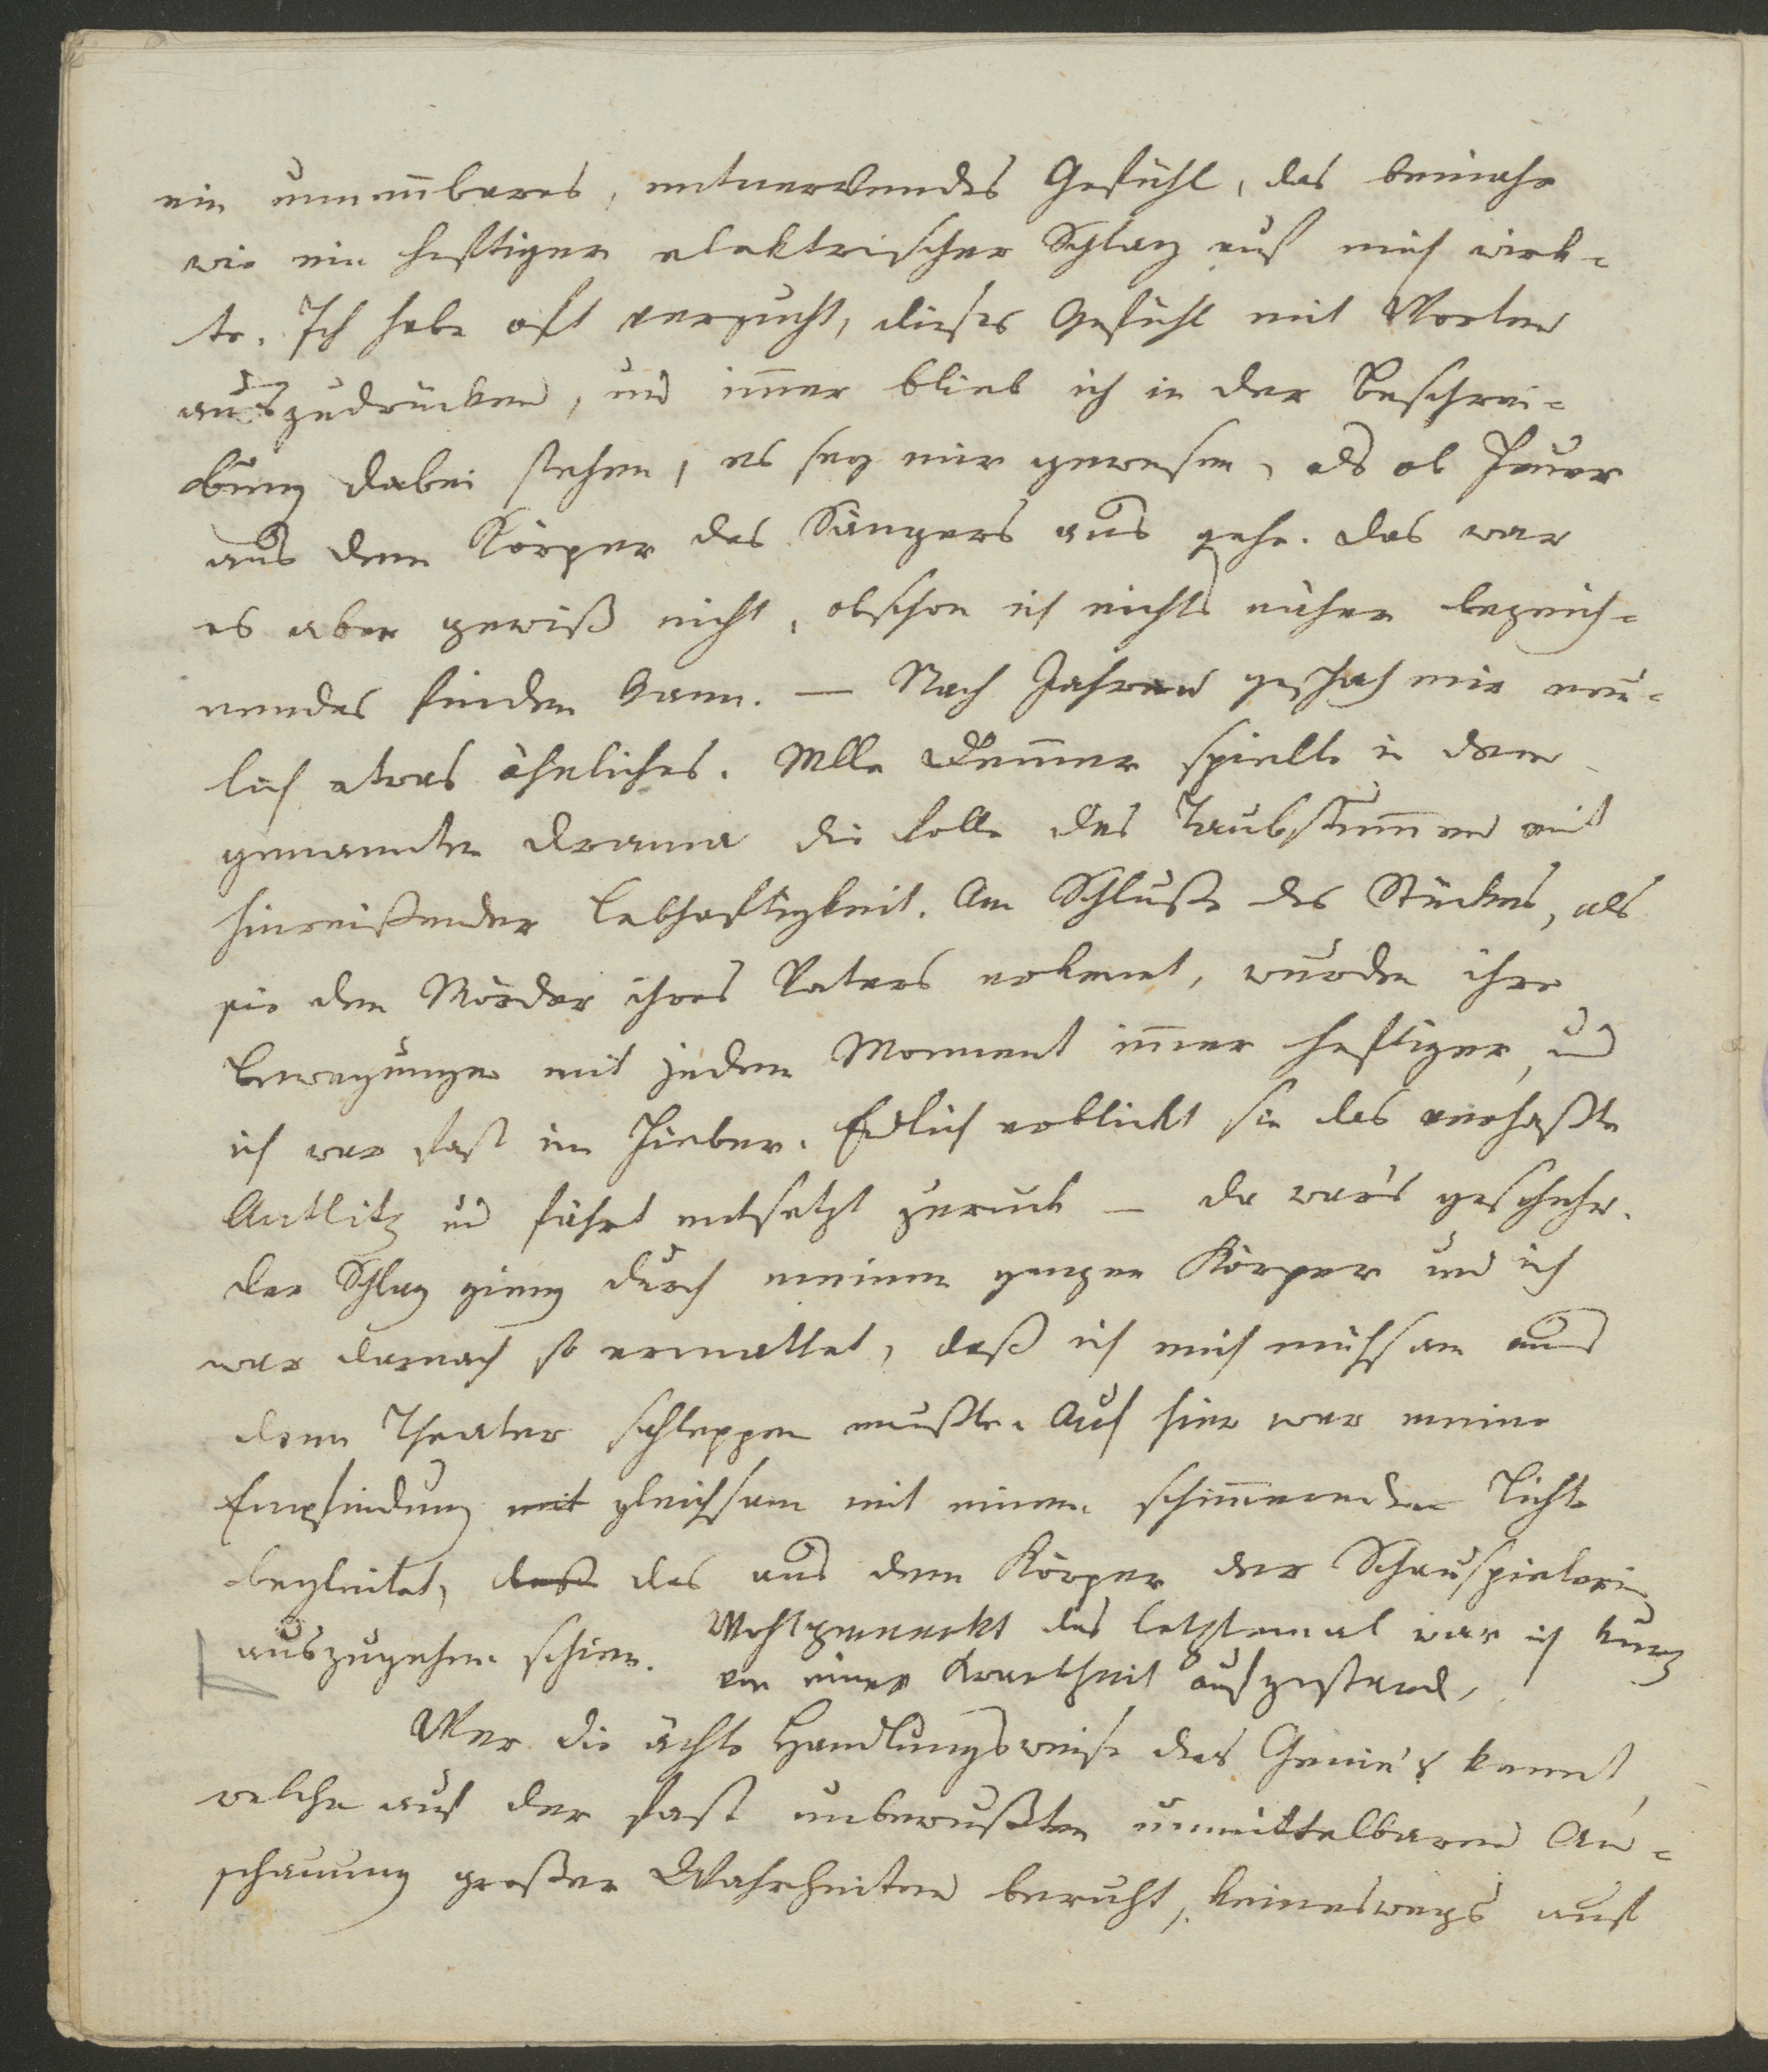 ein unnennbares, entnervendes Gefühl, das beinahe
wie ein heftiger elektrischer Schlag auf mich wirk=
te. Ich habe oft versucht, dieses Gefühl mit Worten
auszudrücken, und im̄er blieb ich in der Beschrei=
bung dabei stehen, es sey mir gewesen, als ob Feuer
aus dem Körper des Sängers aus gehe. Das war
es aber gewiß nicht, obschon ich nichts näher bezeich=
nendes finden kann. — Nach Jahren geschah mir neu=
lich etwas ähnliches. Mlle spielte in dem
genannten Drama die Rolle des Taubstum̄en mit
hinreißender Lebhaftigkeit. Am Schluße des Stückes, als
sie den Mörder ihres Vaters erkennt, wurden ihre
Bewegungen mit jedem Moment im̄er heftiger, und
ich war fast im Fieber. Endlich erblickt sie das verhaßte
Antlitz und fährt entsetzt zurück – da war's geschehn.
Der Schlag gieng durch meinen ganzen Körper und ich
war darnach so ermattet, daß ich mich mühsam aus
dem Theater schleppen mußte. Auch hier war meine
Empfindung mit gleichsam mit einem schim̄ernden Lichte
begleitet, daß das aus dem Körper der Schauspielerin
auszugehen schien. Wohlgemerkt das letztemal war ich kurz
von einer Krankheit aufgestanden,
Wer die ächte Handlungsweise des Genie's kennt,
welche auf der fast unbewußten unmittelbaren An=
schauung großer Wahrheiten beruht, keineswegs auf